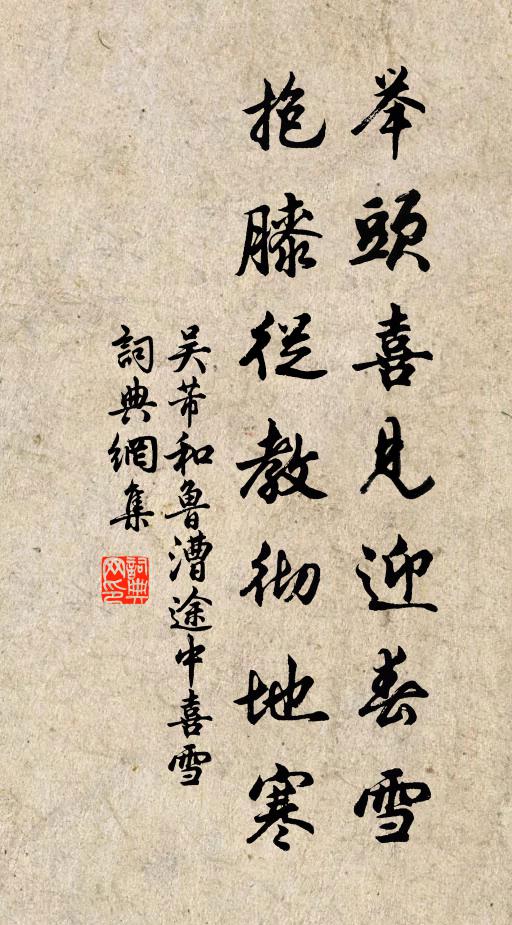 举頭喜見迎春雪
抱膝從教彻地寒
吴芾和魯漕途中喜雪
詞典網集
詞典网印